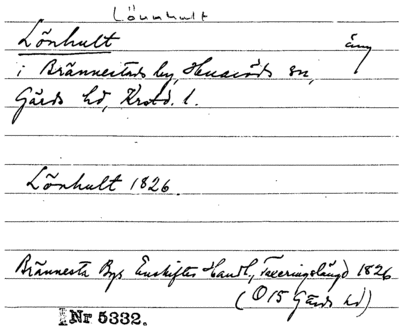 Lönnhult
Lönhult äng
i Brännestads by, Huaröds sn,
Gärds hd, Krstd. l.
Lönhult 1826.
Brännesta Bys Enskiftes Handl., Taxeringslängd 1826
(O15 Gärds hd)
Nr 5332.